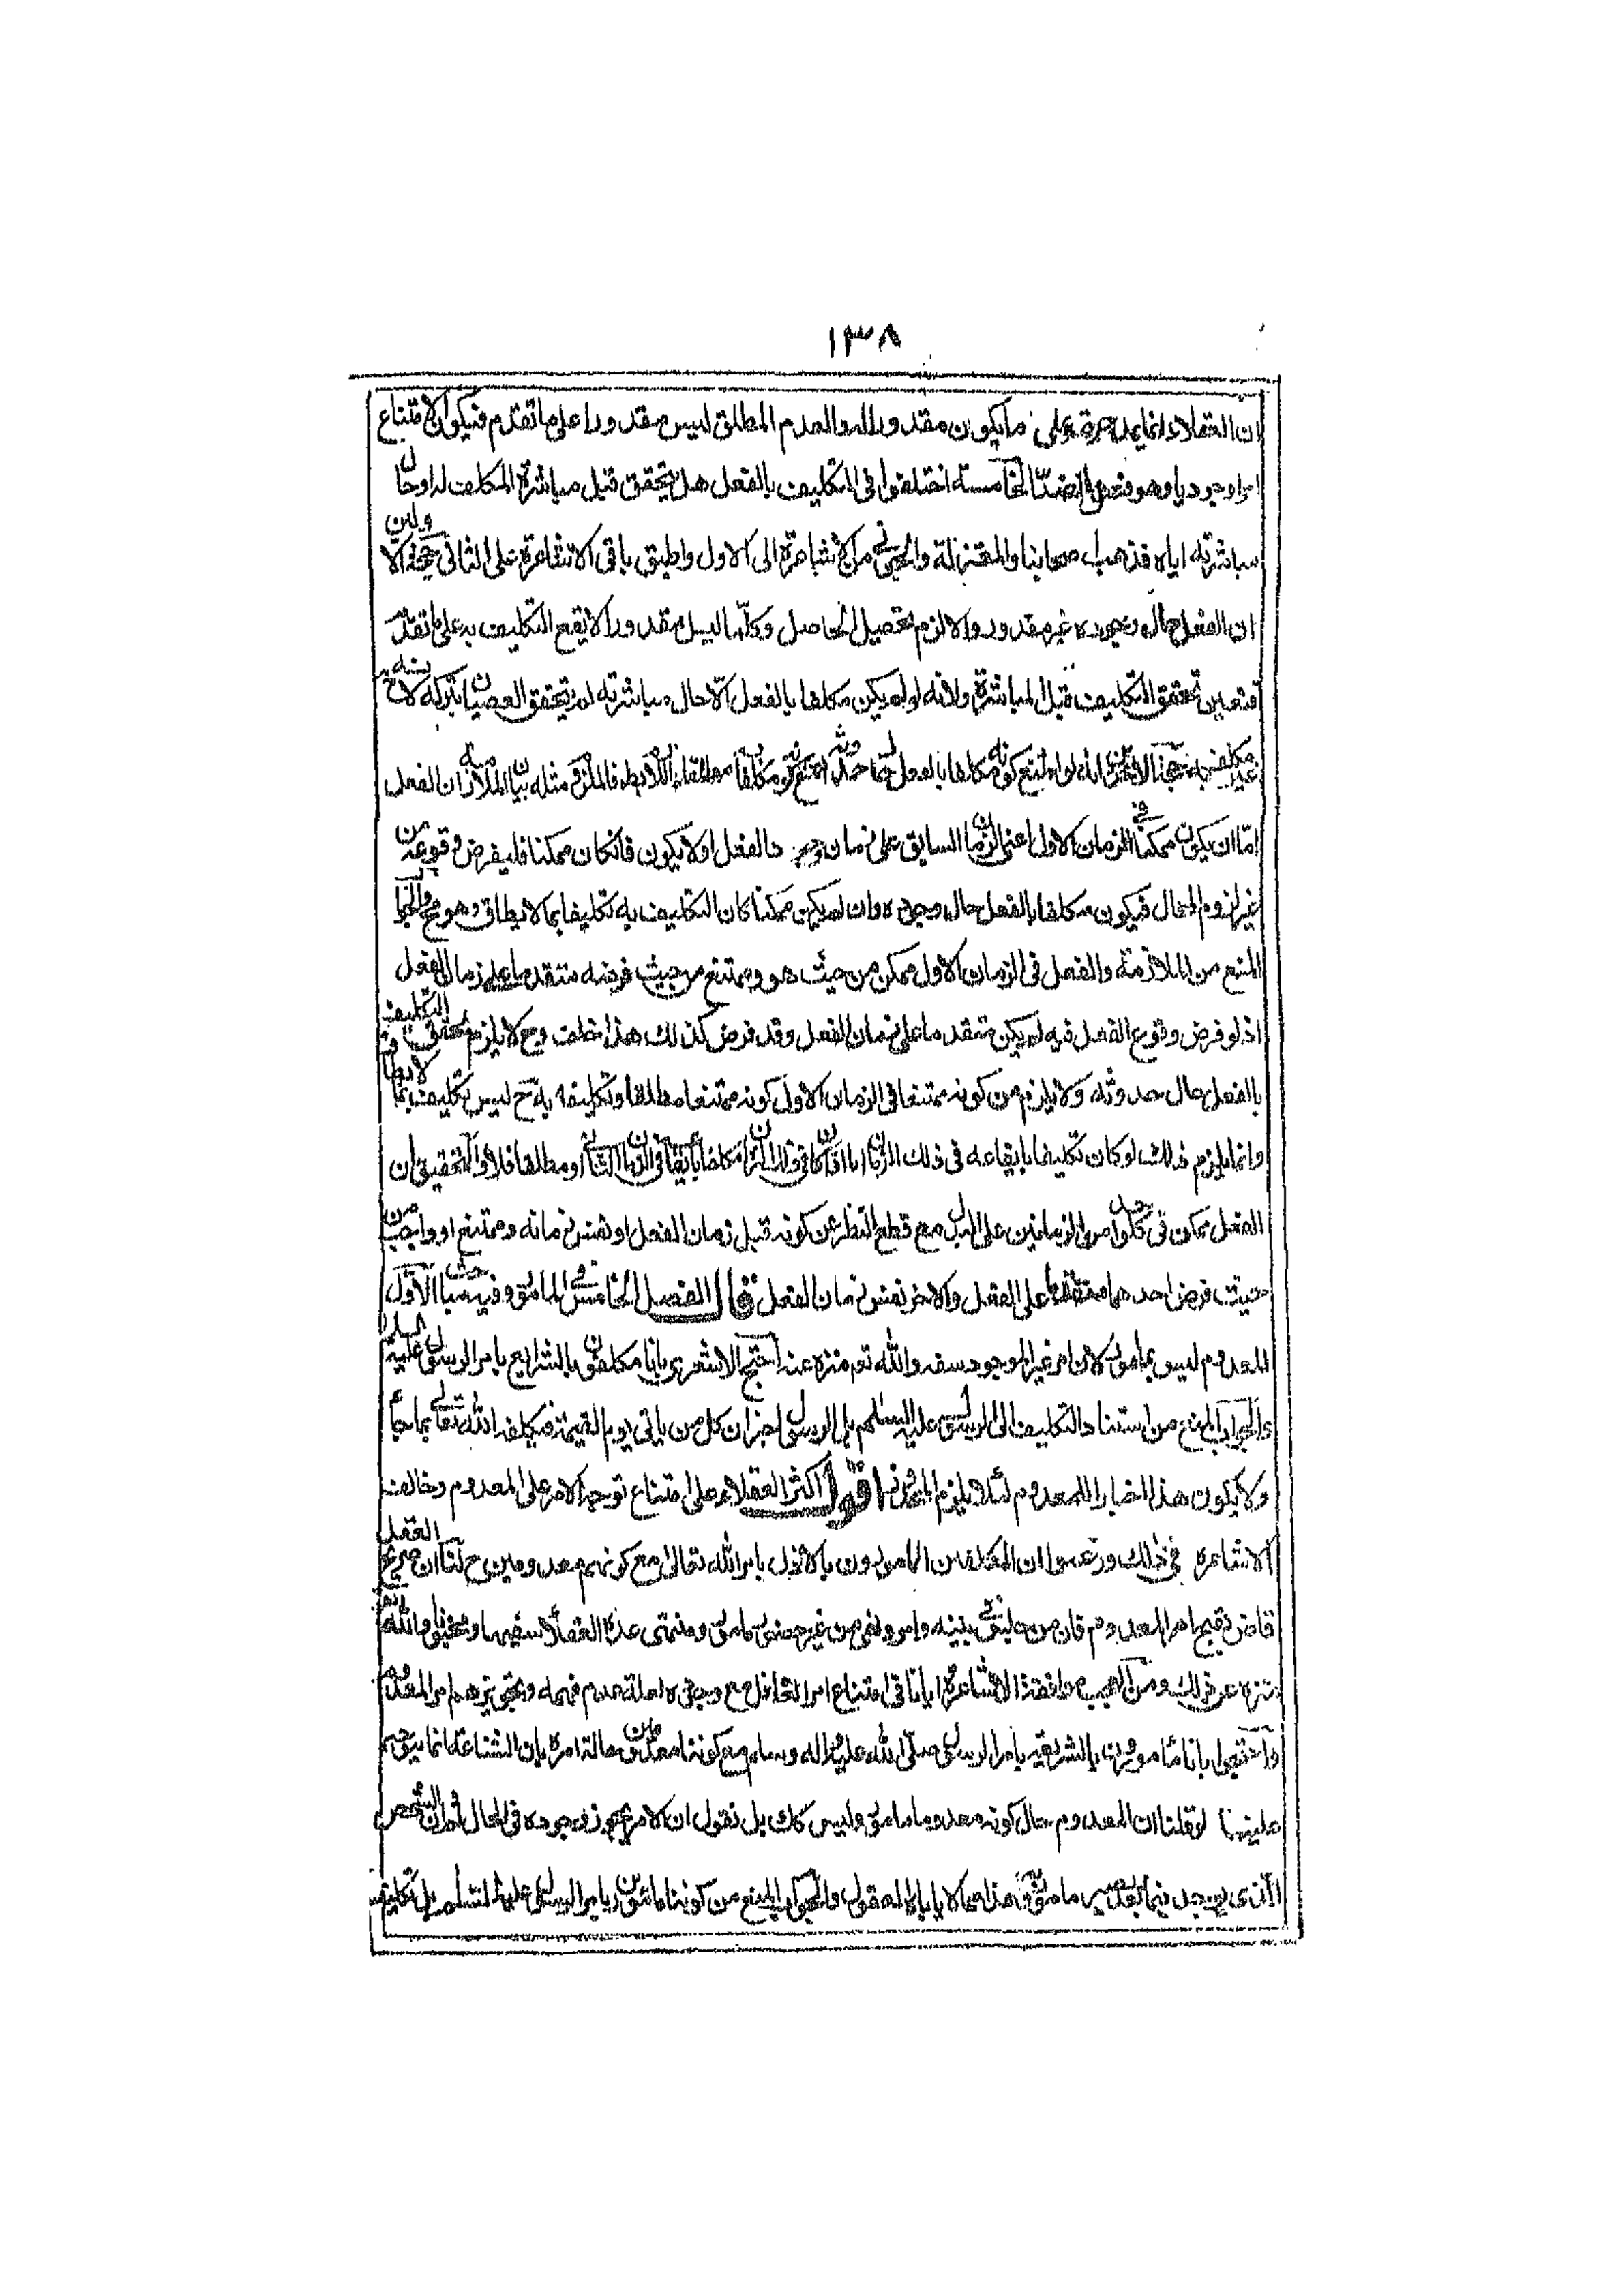 ١٣٨
ان العقلاء انما يمدحونه على ما يكون مقدورا له والعدم المطلق ليس مقدورا على ما تقدم فيكون الامتناع
امرا وجوديا وهو فعل الضد الخامسة اختلفوا فى التكليف بالفعل هل يتحقق قبل مباشرة المكلف له او حال
مباشرته اياه فذهب اصحابنا والمعتزلة والجوينى من الاشاعرة الى الاول واطبق باقى الاشاعرة على الثانى حجة الاولين
ان الفعل حال وجوده غير مقدور والا لزم تحصيل الحاصل وكل ما ليس مقدورا لا يقع التكليف به على ما تقدم
فتعين تحقق التكليف قبل المباشرة ولانه لو لم يكن مكلفا بالفعل الا حال مباشرته لم يتحقق العصيان بتركه لانه ح
غير مكلف به احتج الاخرون انه لو امتنع كونه مكلفا بالفعل حال حدوثه امتنع كونه مكلفا مطلقا واللازم بط فالملزوم مثله بيان الملازمة ان الفعل
اما ان يكون ممكنا فى الزمان الاول اعنى الزمان السابق على زمان وجود الفعل او لا يكون فان كان ممكنا فليفرض وقوعه من
غير لزوم المحال فيكون مكلفا بالفعل حال وجوده وان لم يكن ممكنا كان التكليف به تكليفا بما لا يطاق وهو مح والجواب
المنع من الملازمة والفعل فى الزمان الاول ممكن من حيث هو وممتنع من حيث فرضه متقدما على زمان الفعل
اذ لو فرض وقوع الفعل فيه لم يكن متقدما على زمان الفعل وقد فرض كذلك هذا خلف وح لا يلزم تحقق التكليف
بالفعل حال حدوثه ولا يلزم من كونه ممتنعا فى الزمان الاول كونه ممتنعا مطلقا وتكليفه به ح ليس تكليف بما لا يطاق
وانما يلزم ذلك لو كان تكليفا بايقاعه فى ذلك الزمان اما اذا كان فى ذلك الزمان مكلفا بايقاعه فى الزمان الثانى او مطلقا فلا والتحقيق ان
الفعل ممكن فى كل واحد من الزمانين على البدل مع قطع النظر عن كونه قبل زمان الفعل او نفس زمانه وممتنع او واجب من
حيث فرض احدهما متقدما على الفعل والاخر نفس زمان الفعل قال الفصل الخامس فى المامور وفيه مباحث الاول
المعدوم ليس بمامور لان امر غير الموجود سفه والله تع منزه عنه احتج الاشعرى بانا مكلفون بالشرايع بامر الرسول عليه السلم
والجواب المنع من استناد التكليف الى الرسول عليه السلم بل الرسول اخبر ان كل من ياتى يوم القيمة فيكلفه الله تعالى بما جاء
ولا يكون هذا اخبارا للمعدوم لئلا يلزم المحذور اقول اكثر العقلاء على امتناع توجه الامر على المعدوم وخالف
الاشاعره فى ذلك وزعموا ان المكلفين مامورون بالازل بامر الله تعالى مع كونهم معدومين ح لنا ان صريح العقل
قاض بقبح امر المعدوم فان من جلس فى بيته وامر ونهى من غير حضور مامور ومنتهى عده العقلاء سفيها ومجنونا والله تعالى
منزه عن ذلك ومن العجب موافقة الاشاعرة ايانا فى امتناع امر الغافل مع وجوده لعلة عدم فهمه وتجويزهم امر المعدوم
واحتجوا بانا مامورون بالشريعة بامر الرسول صلى الله عليه واله وسلم مع كوننا معدومين حالة امره بان الشناعة انما تتوجه
علينا لو قلنا ان المعدوم حال كونه معدوما مامور وليس كك بل نقول ان الامر يجوز وجوده فى الحال ثم ان الشخص
الذى يوجد فيما بعد يصير مامورا وهذا مما لا ياباه العقول والجواب المنع من كوننا مامورين بامر الرسول عليه السلم بل تكليف